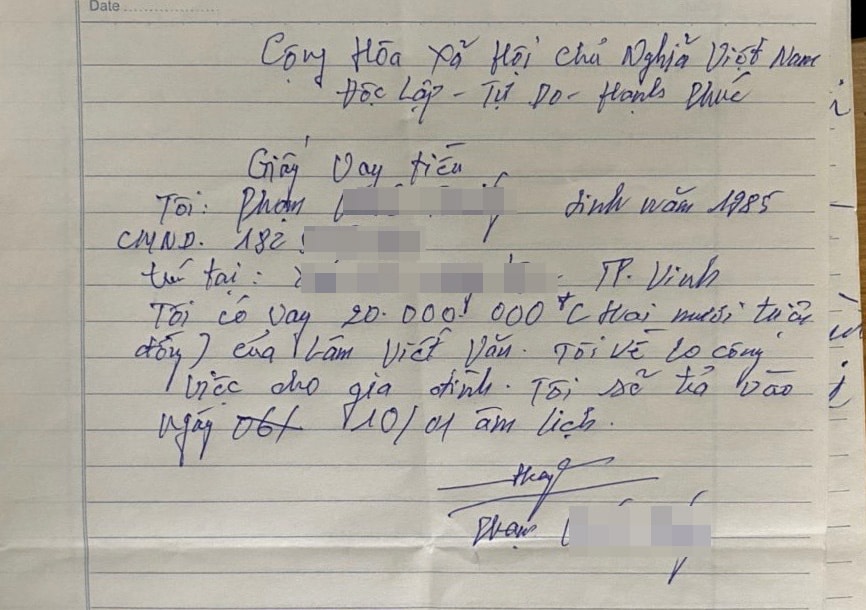 Date
Cộng Hòa Xã Hội Chủ Nghĩa Việt Nam
Độc Lập - Tự Do - Hạnh Phúc
Giấy Vay tiền
Tôi: Phạm sinh năm 1985
CMND. 182
trú tại: TP. Vinh
Tôi có vay 20.000.000đ (Hai mươi triệu
đồng) của Lâm Viết Văn. Tôi về lo công
việc cho gia đình. Tôi sẽ trả vào
ngày 10/01 âm lịch.
Phạm